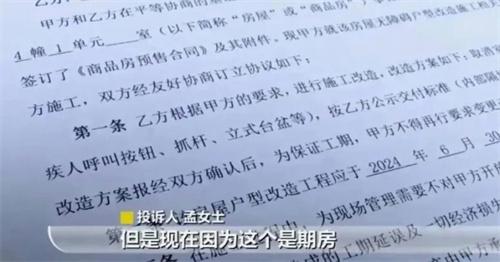 甲方和乙方在平等协商的基
4 幢 1 单元____室(以下简称“房屋”或“商品房”)
签订了《商品房预售合同》及其附件。现甲方就该房屋无障碍户型改造施工相
方施工,双方经友好协商订立协议如下:
第一条 乙方根据甲方的要求,进行施工改造,改造方案如下:取消
疾人呼叫按钮、抓杆、立式台盆等),按乙方公示交付标准(内部
改造方案报经双方确认后,为保证工期,甲方不得再行要求变更
房屋户型改造工程应于 2024 年 6 月 30
为现场管理需要不对甲方开
成的工期延误及一切经济损失
投诉人 孟女士
但是现在因为这个是期房